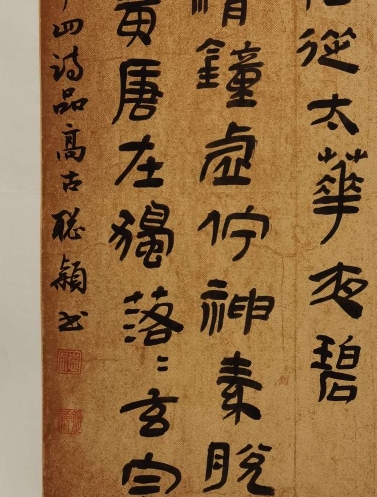 從太華夜碧
清鐘虛佇神素脫
黃唐在獨落〻玄宗
四詩品高古聰穎書